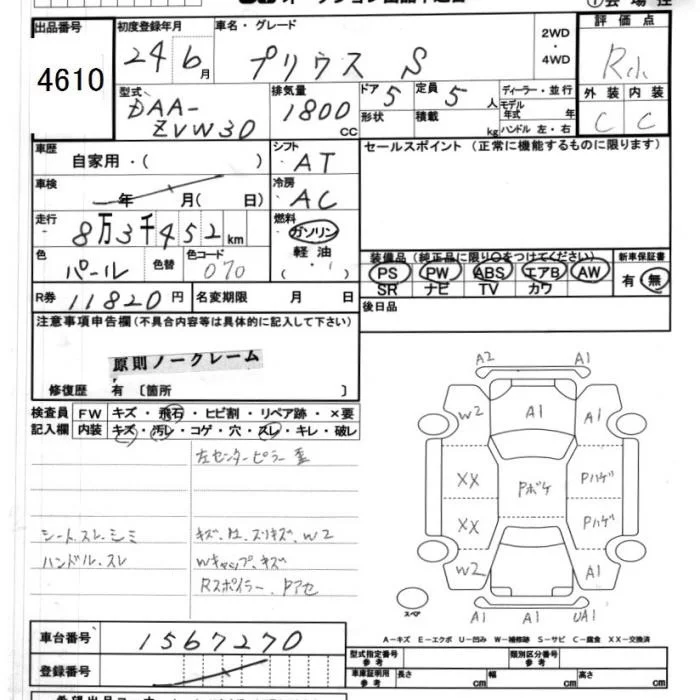 出品番号
4610
初度登録年月
24 6月
車名・グレード
プリウス S
2WD
・
4WD
評価点
外装 内装
C C
型式
DAA-
ZVW30
排気量
1800
cc
ドア
5
定員
5
人
形状
積載
kg
ディーラー・並行
モデル
年式 年
ハンドル 左・右
車歴
自家用・( )
シフト
AT
セールスポイント (正常に機能するものに限ります)
車検
年 月( 日)
冷房
AC
走行
8万3千452km
燃料
ガソリン
軽油
( ・ )
色
パール
色替
色コード
070
装備品 (純正品に限り○をつけてください)
PS PW ABS エアB AW
SR ナビ TV カワ
新車保証書
有・無
R券 11820円
名変期限 月 日
後日品
注意事項申告欄(不具合内容等は具体的に記入して下さい)
原則ノークレーム
修復歴 有 〔箇所 〕
検査員
記入欄
FW キズ・飛石・ヒビ割・リペア跡・×要
内装 キズ・汚レ・コゲ・穴・スレ・キレ・破レ
左センターピラー歪
シートスレ、シミ
ハンドル、スレ
キズ、凹、スリキズ、W2
Wキャップ、キズ
Rスポイラー、Pアセ
A2 A1
W2 A1 A1
XX Pボケ Pハゲ
XX Pハゲ
W2 A1
スペア
A1 A1 UA1
A-キズ E-エクボ U-凹み W-補修跡 S-サビ C-腐食 XX-交換済
車台番号 1567270
登録番号
型式指定番号
参考
類別区分番号
参考
車庫証明用
参考
長さ cm 幅 cm 高さ cm